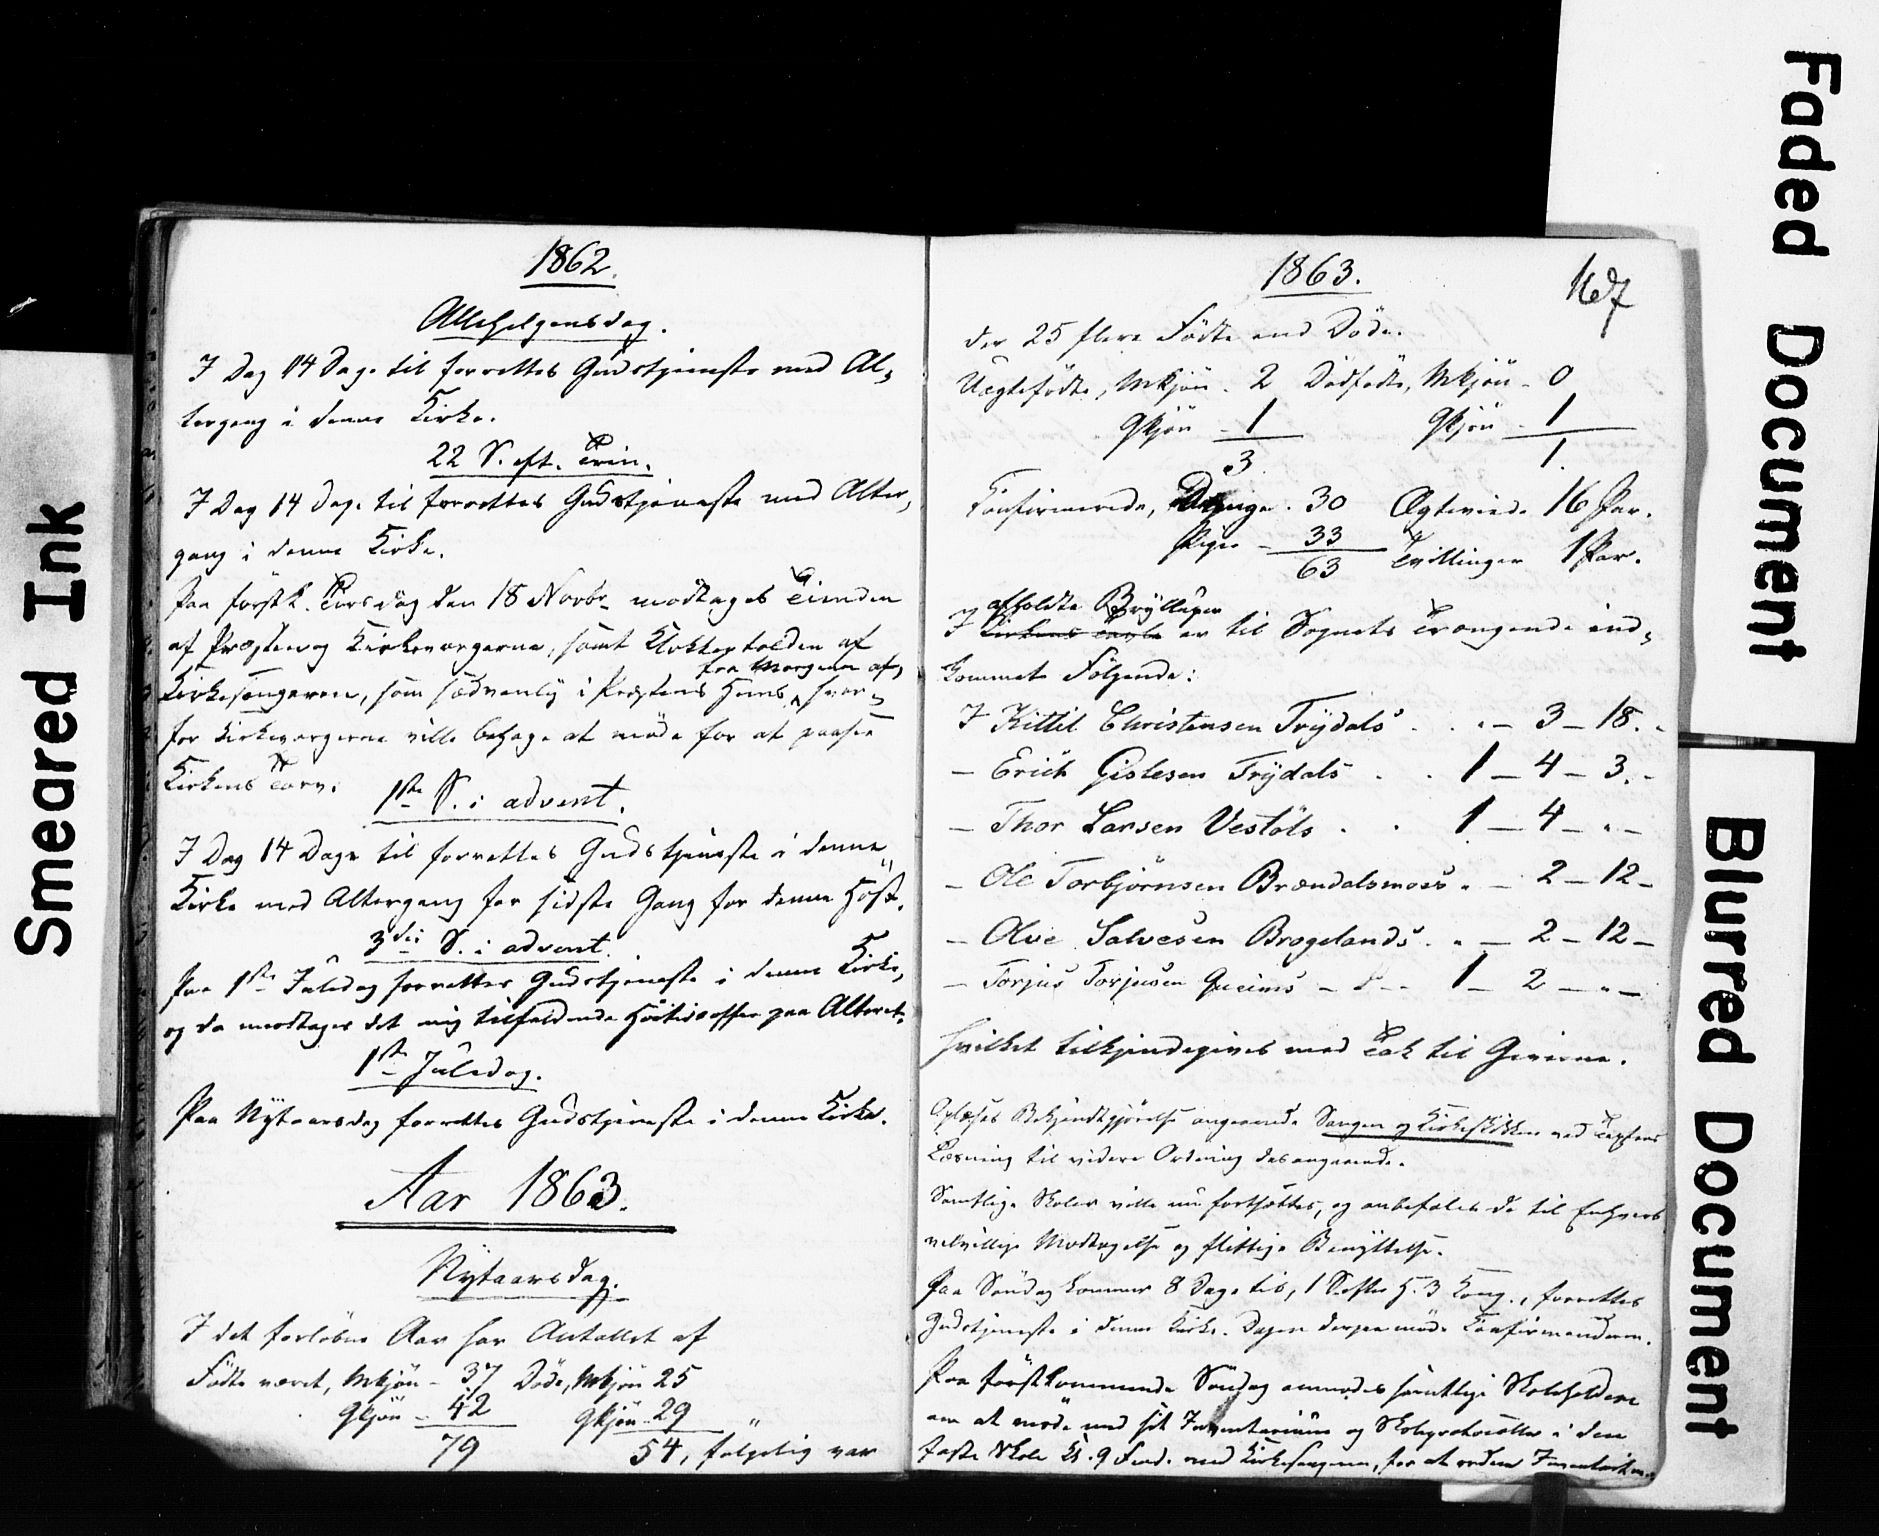 1862.
Allehelgensdag.
I Dag 14 Dage til forrettes Gudstjeneste med Al-
tergang i denne Kirke.
22 S. eft. Trin.
I Dag 14 Dage til forrettes Gudstjeneste med Alter-
gang i denne Kirke.
Paa førstk. Tirsdag den 18 Novbr. modtages Tienden
af Præsten og Kirkeværgerne, samt Klokkertolden af
fra Morgenen af,
Kirkesangeren, som sædvanlig i Præstens Huus, hvor-
for Kirkeværgerne ville behage at møde for at paasee
Kirkens Tarv.
1ste S. i advent.
I Dag 14 Dage til forrettes Gudstjeneste i denne
Kirke med Altergang for sidste Gang for denne Høst.
3die S. i advent.
Paa 1ste Juledag forrettes Gudstjeneste i denne Kirke,
og da modtages det mig tilfaldende Høitidsoffer paa Alteret.
1ste Juledag.
Paa Nytaarsdag forrettes Gudstjeneste i denne Kirke.
Aar 1863.
Nytaarsdag.
I det forløbne Aar har Antallet af
Fødte været, Mkjøn - 37 Døde, Mkjøn 25
Qkjøn - 42 Qkjøn - 29
79 54, følgelig var
1863.
167
der 25 flere Fødte end Døde.
Uægtefødte, Mkjøn - 2 Dødfødte, Mkjøn - 0
Qkjøn - 1 Qkjøn - 1
3. 1.
Confirmerede, Drenge - 30 Ægteviede 16 Par.
Piger - 33 Tvillinger 1 Par.
63
afholdte Brylluper
I Kirkens Tavle er til Sognets Trængende ind-
kommet Følgende:
I Kittil Christensen Trydals . . - 3 - 18. -
- Erich Gislesen Trydals . . 1 - 4 - 3. -
- Thor Larsen Vestøls . . 1 - 4 - " -
- Ole Torbjørnsen Brændalsmoes . - 2 - 12 -
- Olve Salvesen Brøgelands . . - 2 - 12 -
- Torjus Torjusen Gueims - - 1 - 2 - " -
hvilket tilkjendegives med Tak til Giverne.
Oplæses Bekjendtgjørelse angaaende Sangen og Kirkeskikken ved
Læsning til videre Ordning desangaaende.
Samtlige Skoler ville nu fortsættes, og anbefales de til Enhvers
velvillige Modtagelse og flittige Benyttelse.
Paa Søndag kommer 8 Dage til, 1 S. efter H. 3 Kong., forrettes
Gudstjeneste i denne Kirke. Dagen derpaa møde Confirmanderne.
Paa førstkommende Søndag anmodes samtlige Skoleholdere
om at møde med sit Inventarium og Skoleprotocoller i den
faste Skole Kl. 9 Form. med Kirkesangeren, for at ordne Inventariet.
Smeared Ink
Faded Document
Blurred Document